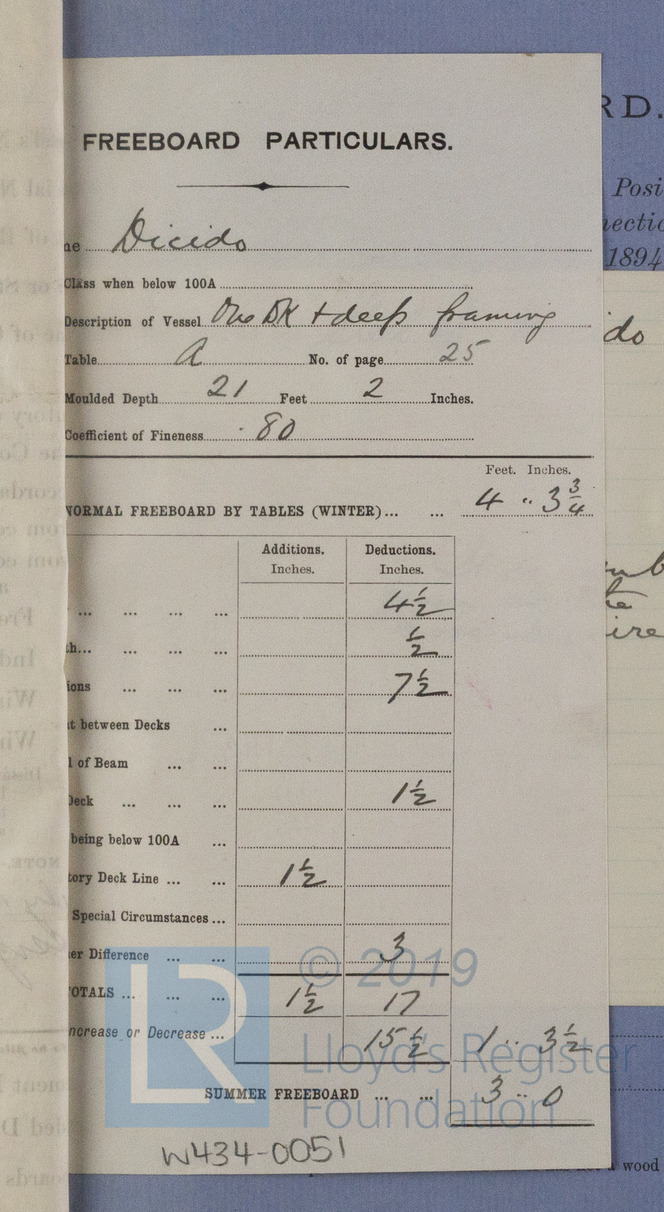 RD.
FREEBOARD PARTICULARS.
Posi
nectio
1894
ne Dicido
Class when below 100A
Description of Vessel One DK + deep framing
do
Table A No. of page 25
Moulded Depth 21 Feet 2 Inches.
Coefficient of Fineness .80
Feet. Inches.
NORMAL FREEBOARD BY TABLES (WINTER)... ... 4 .. 3 3/4
Additions. Deductions.
Inches. Inches.
... ... ... ... 4 1/2
th... ... ... ... 1/2
ions ... ... ... 7 1/2
t between Decks ...
l of Beam ... ...
Deck ... ... ... 1 1/2
being below 100A ...
tory Deck Line ... ... 1 1/2
Special Circumstances ...
er Difference ... ... 3
TOTALS ... ... ... 1 1/2 17
ncrease or Decrease ... 15 1/2 1 .. 3 1/2
SUMMER FREEBOARD ... ... 3 .. 0
W434-0051
wood
© 2019
LR
Lloyd's Register
Foundation